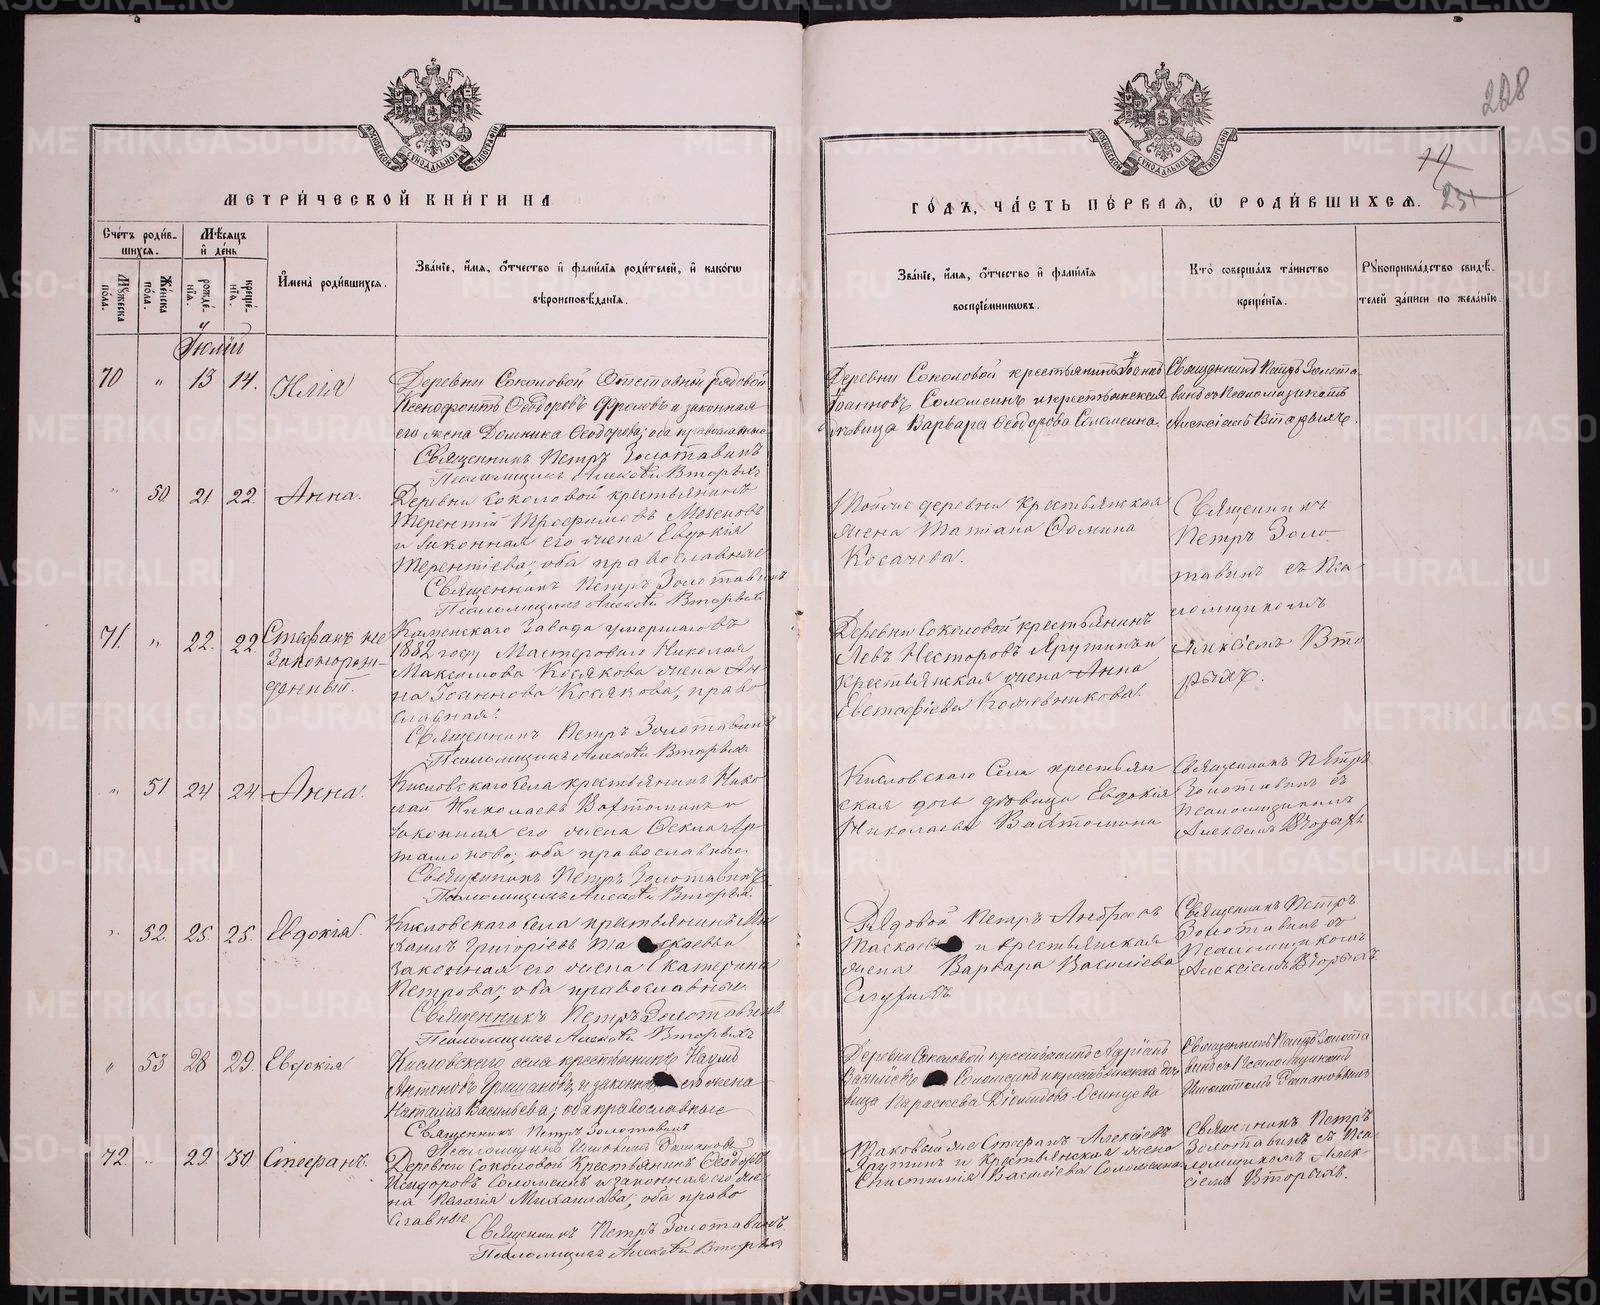 228
19
231
МОСКОВСКОЙ СѴНОДАЛЬНОЙ ТИПОГРАФІИ
МОСКОВСКОЙ СѴНОДАЛЬНОЙ ТИПОГРАФІИ
МЕТРИ́ЧЕСКОЙ КНИ́ГИ НА
ГО́ДЪ, ЧА́СТЬ ПЕ́РВАЯ, Ѿ РОДИ́ВШИХСЯ.
Счетъ роди́в-
шихся.
Мѣсяцъ
и де́нь
Мужеска
пола.
Же́нска
по́ла.
рожде́-
нїя.
креще́-
нїя.
Имена̀ роди́вшихся.
Зва́нїе, и́мя, о́тчество и фами́лїя роди́телей, и како́гѡ
вѣроисповѣ́данїя.
Зва́нїе, и́мя, о́тчество и фами́лїя
воспрїе́мниковъ.
Кто̀ соверша́лъ та́инство
креще́нїя.
Рукоприкла́дство свидѣ́-
телей за́писи по жела́нїю.
Іюлій
70 " 13 14. Илія
Деревни Соколовой Отставной рядовой
Ксенофонтъ Ѳеодоровъ Фроловъ и законная
его жена Домника Ѳеодорова; оба православные
Священникъ Петръ Золотавинъ
Псаломщикъ Алексѣй Вторыхъ
Деревни Соколовой крестьянинъ
Іоанновъ Соломеинъ и крестьянская
дѣвица Варвара Ѳеодорова Соломеина.
Священникъ Петръ Золота
винъ съ Псаломщикомъ
Алексіемъ Вторыхъ.
" 50 21 22 Анна.
Деревни Соколовой крестьянинъ
Терентій Трофимовъ
и законная его жена Евдокія
Терентіева; оба православные
Священникъ Петръ Золотавинъ
Псаломщикъ Алексѣй Вторыхъ
Тойже деревни крестьянская
жена Татіана Ѳомина
Косачева.
Священникъ
Петръ Золо-
тавинъ съ Пса-
ломщикомъ
Алексіемъ Вто
рыхъ.
71. " 22. 22. Стефанъ не
законорож-
денный.
Каменскаго Завода умершаго въ
1882 году Мастероваго Николая
Максимова Косякова жена Ан-
на Іоаннова Косякова, право
славная.
Священникъ Петръ Золотавинъ
Псаломщикъ Алексѣй Вторыхъ
Деревни Соколовой крестьянинъ
Левъ Несторовъ Ярутинъ и
крестьянская жена Анна
Евстафіева Кожевникова.
" 51. 24 24 Анна.
Кисловскаго села крестьянинъ Нико
лай Николаевъ Вахтоминъ и
законная его жена Ѳекла Ар-
тамонова; оба православные.
Священникъ Петръ Золотавинъ
Псаломщикъ Алексѣй Вторыхъ.
Кисловскаго Села крестьян
ская дочь дѣвица Евдокія
Николаева Вахтомина
Священникъ Петръ
Золотавинъ съ
Псаломщикомъ
Алексіемъ Вторыхъ
" 52. 25. 25. Евдокія.
Кисловскаго села крестьянинъ Ми
хаилъ Григоріевъ Таскаевъ и
законная его жена Екатерина
Петрова; оба православные.
Священникъ Петръ Золотавинъ
Псаломщикъ Алексѣй Вторыхъ
Рядовой Петръ Андреевъ
Таскаевъ и крестьянская
жена Варвара Василіева
Священникъ Петръ
Золотавинъ съ
Псаломщикомъ
Алексіемъ Вторыхъ
" 53 28 29. Евдокія
Кисловскаго села крестьянинъ Наумъ
Антоновъ Гришановъ и законная его жена
Наталія Васильева; оба православные
Священникъ Петръ Золотавинъ
Псаломщикъ
Деревни Соколовой крестьянинъ Адріанъ
Василіевъ Соломеинъ и крестьянская дѣ-
вица Параскева Діомидова Осинцева
Священникъ Петръ Золота
винъ съ Псаломщикомъ
72. " 29. 30. Стефанъ.
Деревни Соколовой Крестьянинъ Ѳеодоръ
Исидоровъ Соломеинъ и законная его же-
на Пелагія Михаилова; оба право
славные
Священникъ Петръ Золотавинъ
Псаломщикъ Алексѣй Вторыхъ
Таковой же Стефанъ Алексіевъ
Ярутинъ и Крестьянская жена
Епистимія Василіева Соломеина
Священникъ Петръ
Золотавинъ съ Пса-
ломщикомъ Алек-
сіемъ Вторыхъ.
METRIKI.GASO-URAL.RU